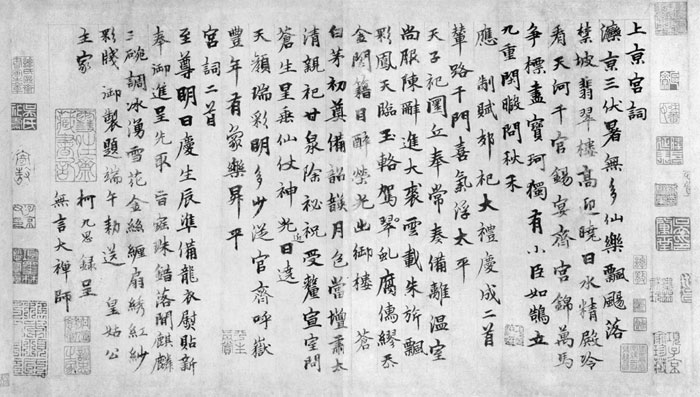 上京宮詞
灤京三伏暑無多仙樂飄颻落
禁坡翡翠樓高迎曉日水精殿冷
看天河千官錫宴齊宮錦萬馬
爭標盡寶珂獨有小臣如鵠立
九重閒暇問秋禾
應 制賦郊祀大禮慶成二首
輦路千門喜氣浮太平
天子祀圜丘奉常奏備離溫室
尚服陳辭進大裘雲載朱旂飄
影鳳天臨玉輅駕翠虬腐儒繆忝
金閨籍目醉榮光出御樓 蒼
白茅初奠備韶韺月色當壇肅太
清親祀甘泉除祕祝受釐宣室問
蒼生星垂仙仗神光近日遶
天顏瑞彩明多少從官齊呼嶽
豐年有象樂昇平
宮詞二首
至尊明日慶生辰準備龍衣熨貼新
奉御進呈先取 旨 珠錯落間麒麟
三碗調冰湧雪花金絲纏扇綉紅紗
彩牋御製題端午勅送 皇姑公
主家
柯九思錄呈
無言大禪師